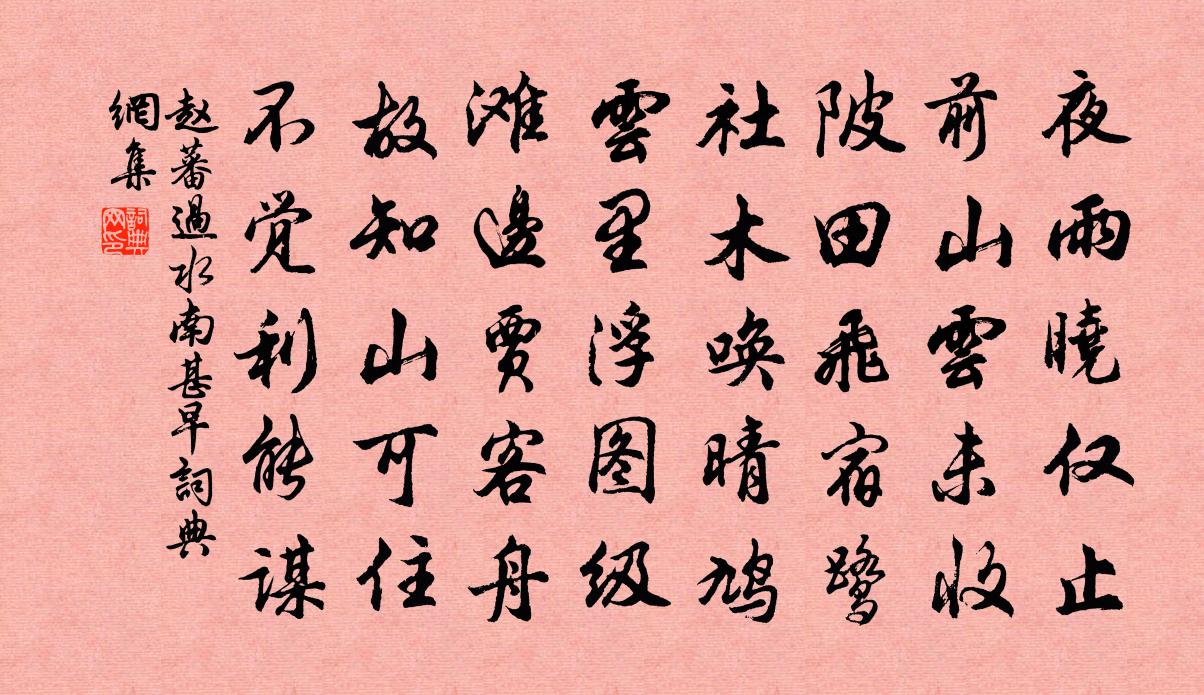 夜雨曉仅止
前山雲未收
陂田飛宿鷺
社木唤晴鳩
雲里浮图级
滩邊賈客舟
故知山可住
不觉利能謀
赵蕃過水南甚早詞典
網集
詞典
网印